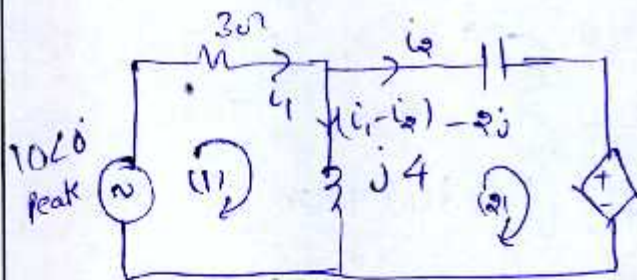 3Ω
i₂
i₁
(i₁-i₂) -2j
10∠0
peak
~
(1)
j4
(2)
+
-